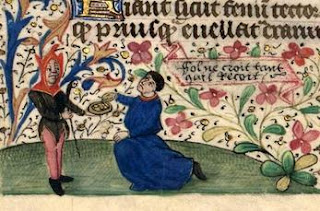 fiant sicut fenum tector
q priusq̃ euellat̃
fol ne croit tant
quil recoit